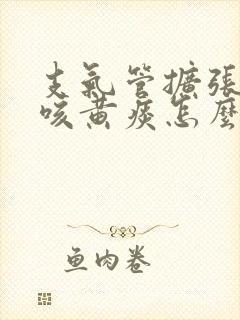 支氣管擴張
咳黃痰怎麼
鱼肉卷